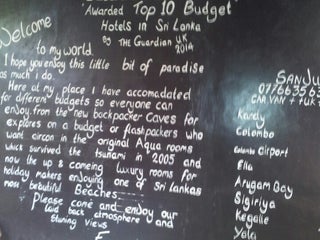 'Awarded Top 10 Budget'
Hotels in Sri Lanka
By THE Guardian UK
2014
Welcome
to my world.
I hope you enjoy this little bit of paradise
as much i do.
Here at my place I have accomadated
for different budgets so everyone can
enjoy. from the new backpacker Caves for
explores on a budget or flashpackers who
want aircon in the original Aqua rooms
which survived the tsunami in 2005 and
now the up & comeing luxury rooms for
holiday makers enjoying one of Sri lankas
most bebutiful Beaches
Please come and enjoy our
laid back atmosphere and
stuning views
SANJU
07766356
CAR VAN + TUK
Kandy
Colombo
Colombo Airport
Ella
Arugam Bay
Sigiriya
Kegalle
Yala